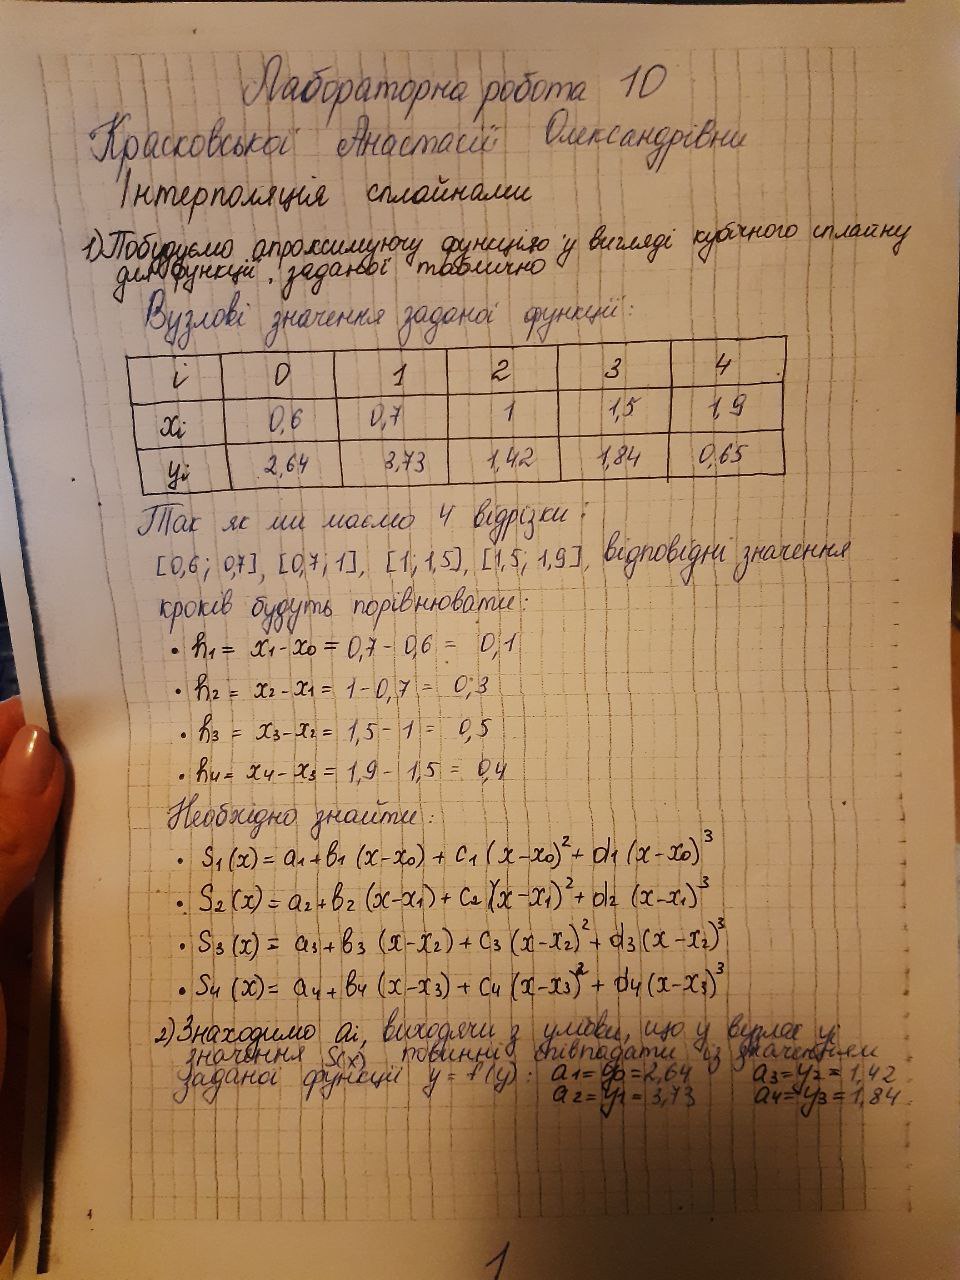 Лабораторна робота 10
Красковської Анастасії Олександрівни
Інтерполяція сплайнами
1) Побудуємо апроксимуючу функцію у вигляді кубічного сплайну
для функції, заданої таблично
Вузлові значення заданої функції:
i 0 1 2 3 4
xi 0,6 0,7 1 1,5 1,9
yi 2,64 3,73 1,42 1,84 0,65
Так як ми маємо 4 відрізки:
[0,6; 0,7], [0,7; 1], [1; 1,5], [1,5; 1,9], відповідні значення
кроків будуть порівнювати:
• h1 = x1-x0 = 0,7 - 0,6 = 0,1
• h2 = x2-x1 = 1-0,7 = 0,3
• h3 = x3-x2 = 1,5 - 1 = 0,5
• h4 = x4-x3 = 1,9 - 1,5 = 0,4
Необхідно знайти:
• S1(x) = a1+b1 (x-x0) + c1 (x-x0)² + d1 (x-x0)³
• S2(x) = a2+b2 (x-x1) + c2 (x-x1)² + d2 (x-x1)³
• S3(x) = a3+b3 (x-x2) + c3 (x-x2)² + d3 (x-x2)³
• S4(x) = a4+b4 (x-x3) + c4 (x-x3)² + d4 (x-x3)³
2) Знаходимо ai, виходячи з умови, що у вузлах у
значення S(x) повинні співпадати із значенням
заданої функції y = f(y): a1=y0=2,64 a3=y2=1,42
a2=y1=3,73 a4=y3=1,84
1